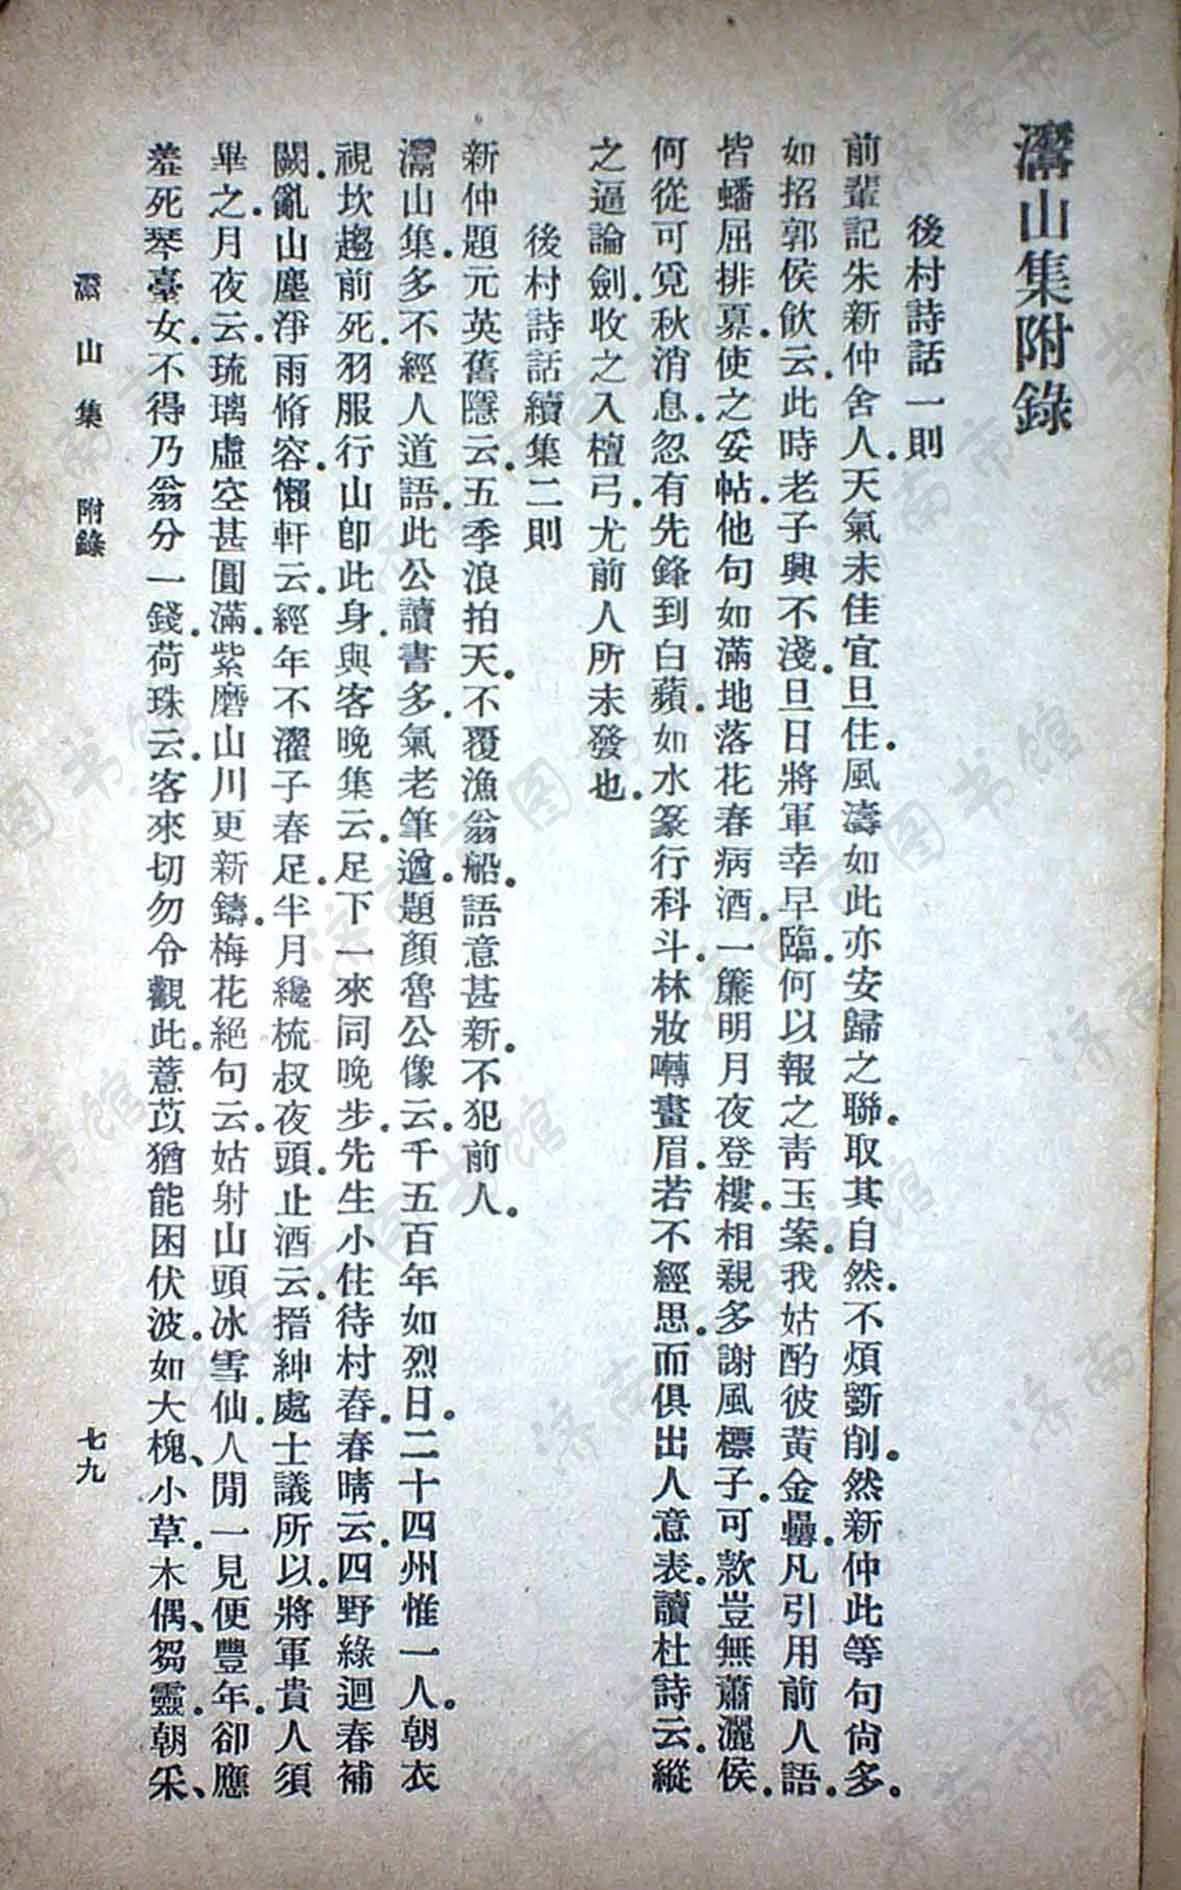 灊山集附錄
後村詩話一則
前輩記朱新仲舍人。天氣未佳宜且住。風濤如此亦安歸之聯。取其自然。不煩斲削。然新仲此等句尙多。
如招郭侯飮云。此時老子興不淺。旦日將軍幸早臨。何以報之靑玉案。我姑酌彼黃金罍。凡引用前人語。
皆蟠屈排奡。使之妥帖。他句如滿地落花春病酒。一簾明月夜登樓。相親多謝風標子。可款豈無蕭灑侯。
何從可覓秋消息。忽有先鋒到白蘋。如水篆行科斗。林妝囀畫眉。若不經思。而俱出人意表。讀杜詩云。縱
之逼論劍。收之入檀弓。尤前人所未發也。
後村詩話續集二則
新仲題元英舊隱云。五季浪拍天。不覆漁翁船。語意甚新。不犯前人。
灊山集。多不經人道語。此公讀書多。氣老筆遒。題顏魯公像云。千五百年如烈日。二十四州惟一人。朝衣
視坎趨前死。羽服行山卽此身。與客晚集云。足下一來同晚步。先生小住待村舂。春晴云。四野綠迴春補
闕。亂山塵淨雨脩容。懶軒云。經年不濯子春足。半月纔梳叔夜頭。止酒云。搢紳處士議所以。將軍貴人須
畢之。月夜云。琉璃虛空甚圓滿。紫磨山川更新鑄。梅花絕句云。姑射山頭冰雪仙。人閒一見便豐年。卻應
羞死琴臺女。不得乃翁分一錢。荷珠云。客來切勿令觀此。薏苡猶能困伏波。如大槐、小草。木偶、芻靈。朝采、
灊山集 附錄
七九